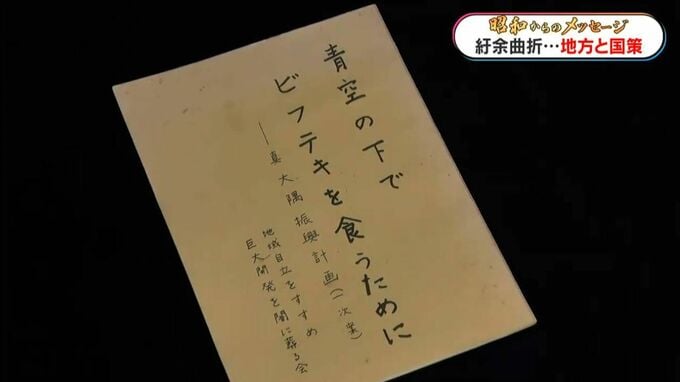 昭和からのメッセージ
紆余曲折…地方と国策
青空の下で
ビフテキを食うために
──真大隅振興計画(一次案)
地域自立をすすめ
巨大開発を闇に葬る会